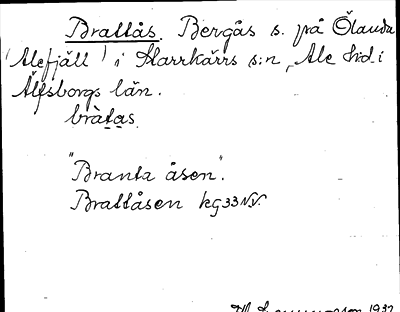 Brattås. Bergås s. på Ölanda
(Alefjäll) i Starrkärrs s:n, Ale hd. i
Älfsborgs län.
bràtas
"Branta åsen".
Brattåsen kg 33 NV.
1937